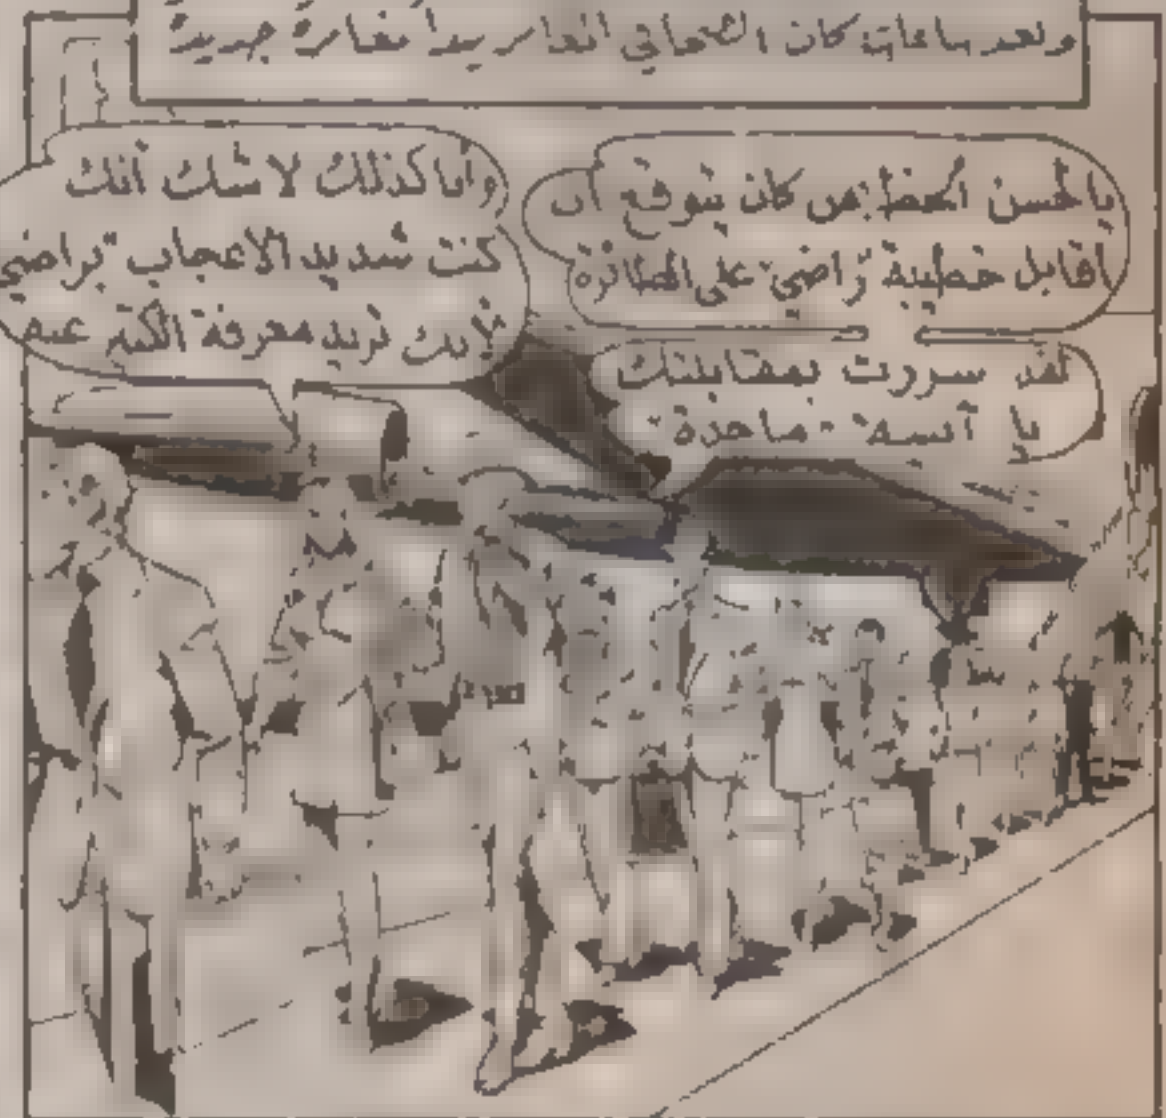 وبعد ساعات كان الصحافي المغامر يبدأ مغامرة جديدة
يا لحسن الحظ من كان يتوقع أن
أقابل خطيبة "راضي" على الطائرة
لقد سررت بمقابلتك
يا آنسة "ماجدة"
وأنا كذلك لا شك أنك
كنت شديد الاعجاب "براضي
تريد معرفة عنه